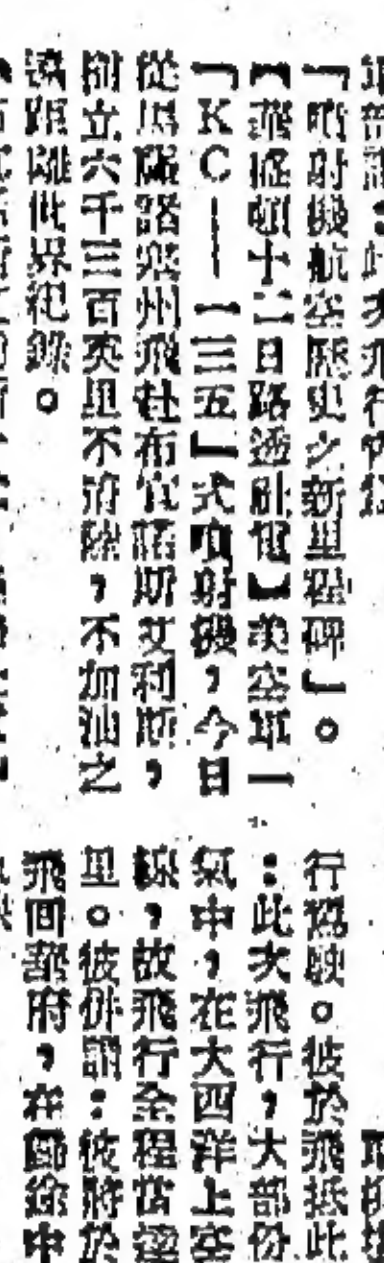 部謂：此次飛行內
「噴射機航空歷史之新里程碑」。
【華盛頓十二日路透社電】美空軍一
「KC──一三五」式噴射機，今日
從馬薩諸塞州飛赴布宜諾斯艾利斯，
創立六千三百英里不着陸，不加油之
遠距離世界紀錄。
行駕駛。彼於飛抵此
：此次飛行，大部份
氣中，在大西洋上空
線，故飛行全程當達
里。彼併謂：彼將於
飛回華府，在歸途中